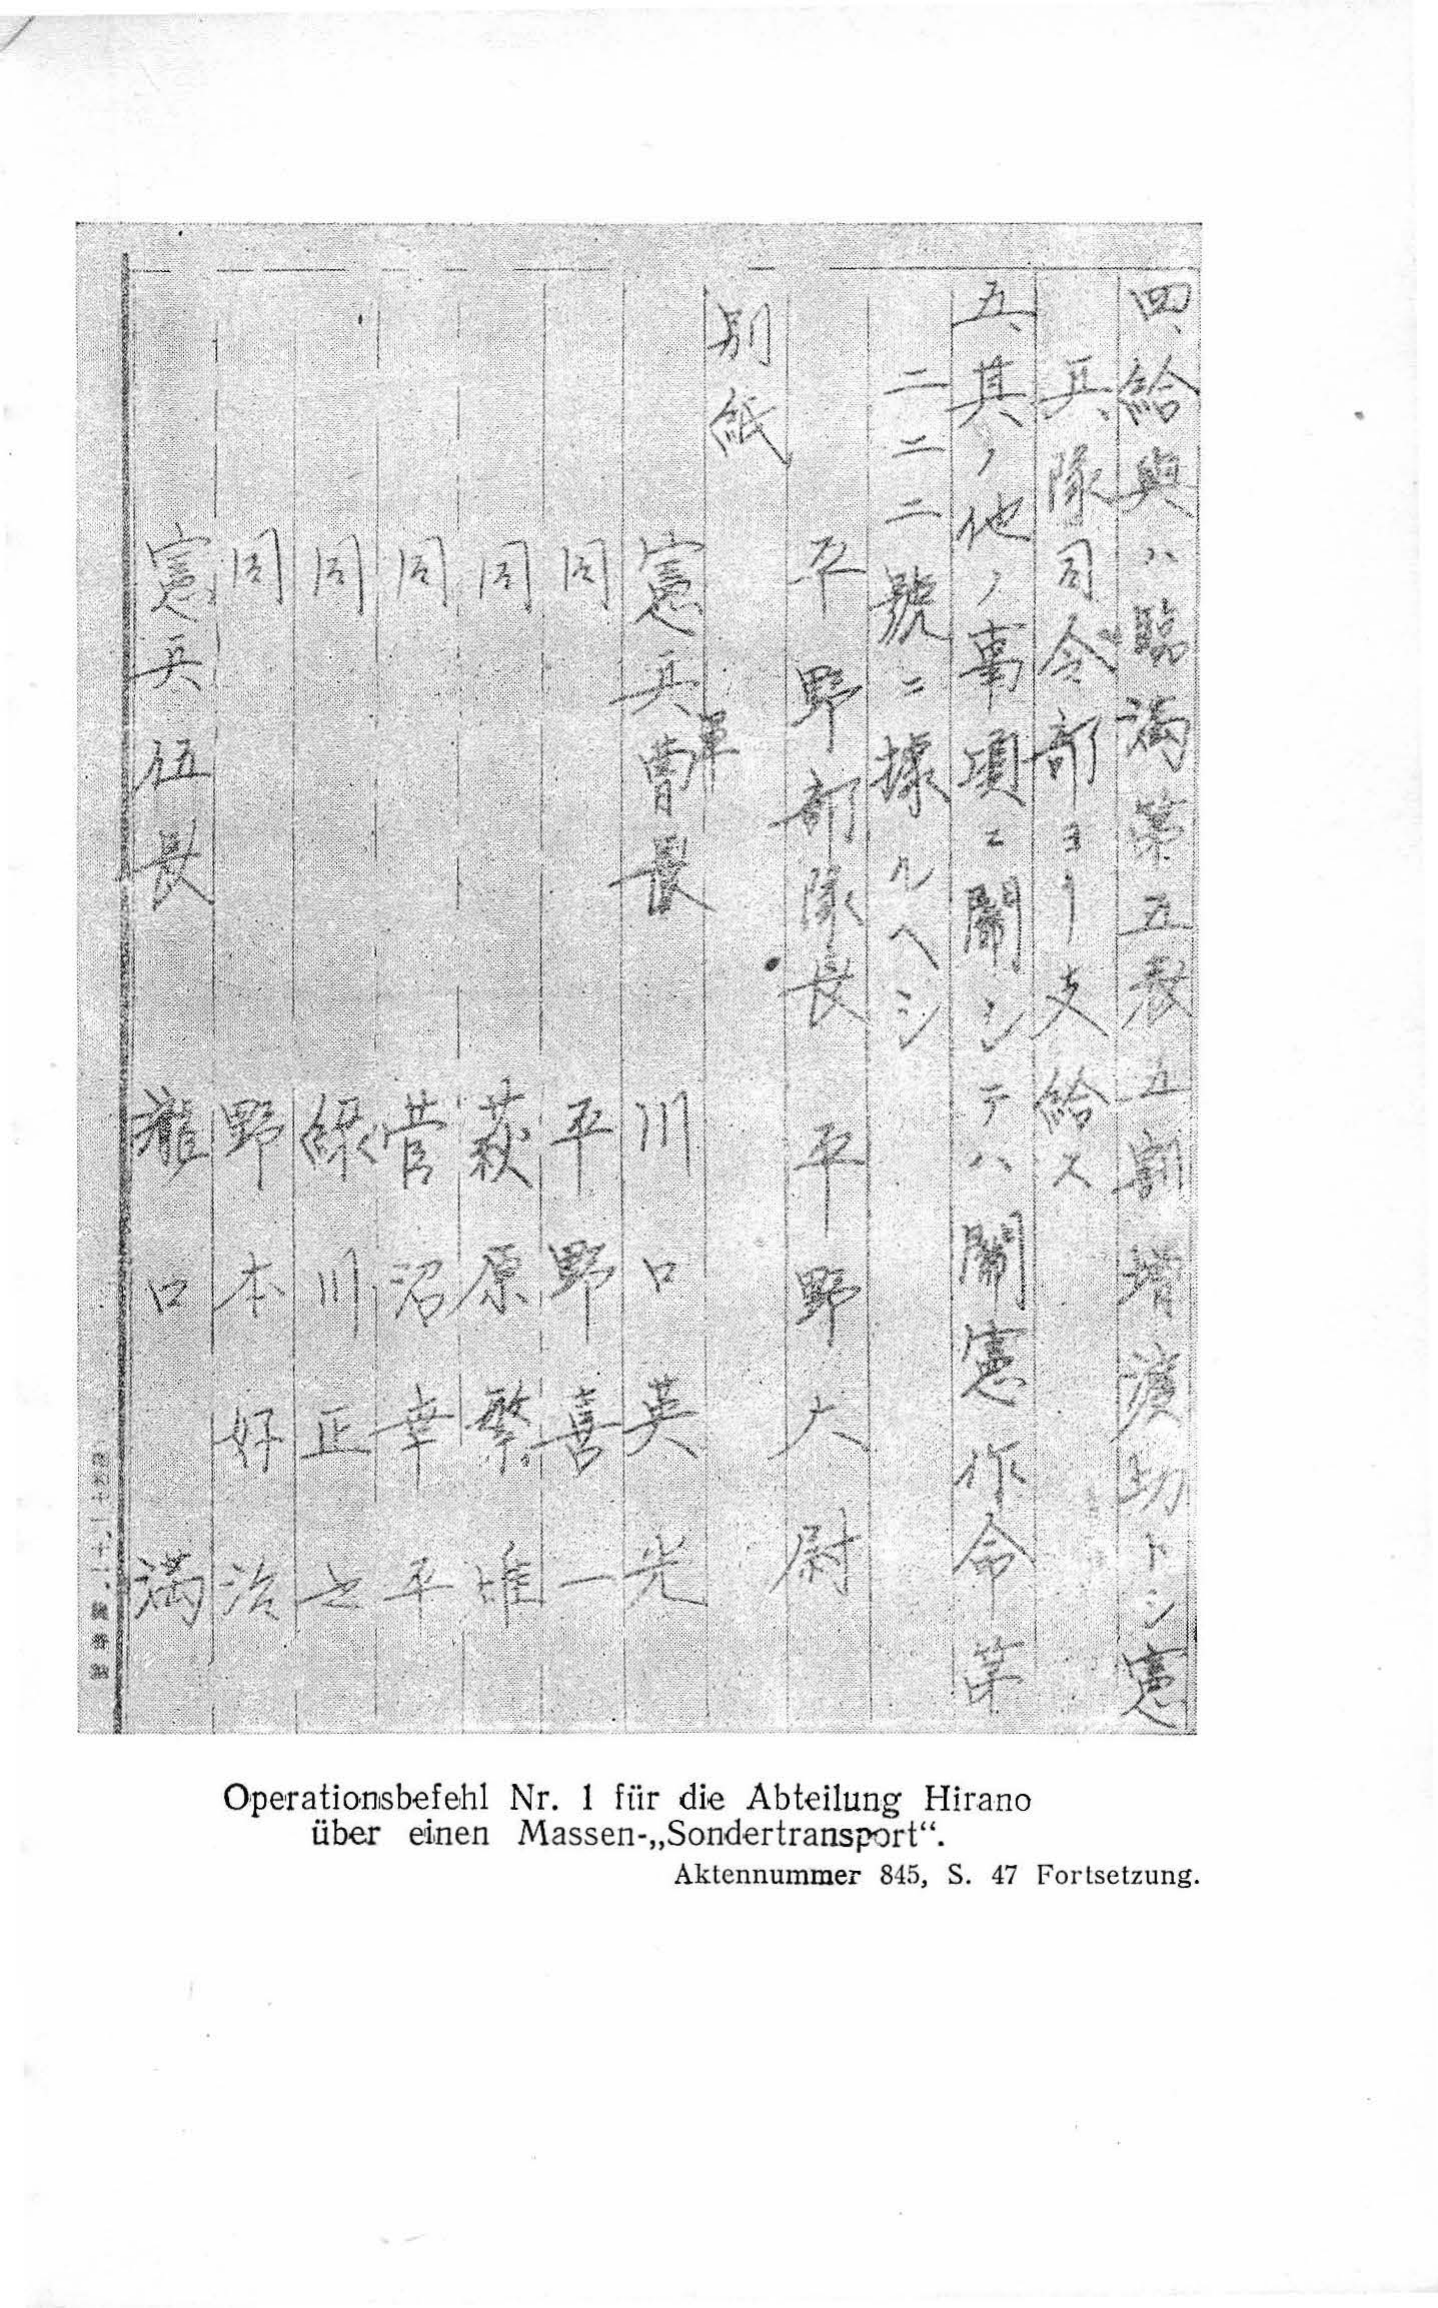 四、給與ハ臨滿第五表五割増渡切トシ憲
兵隊司令部ヨリ支給ス
五、其ノ他ノ事項ニ關シテハ關憲作命第
二二二號ニ據ルヘシ
平野部隊長 平野大尉
別紙
軍
憲兵曹長 川口英光
同 平野喜一
同 萩原繁雄
同 菅沼幸平
同 緑川正之
同 野本好治
憲兵伍長 瀧口満
Operationsbefehl Nr. 1 für die Abteilung Hirano
über einen Massen-„Sondertransport“.
Aktennummer 845, S. 47 Fortsetzung.